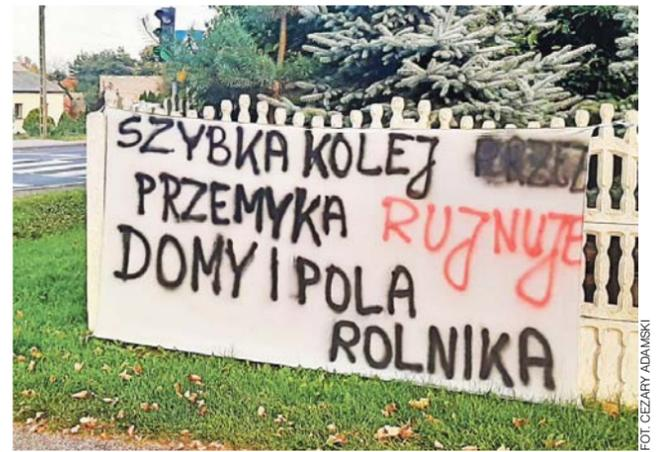 SZYBKA KOLEJ
PRZEMYKA RUJNUJE
DOMY I POLA
ROLNIKA
FOT. CEZARY ADAMSKI